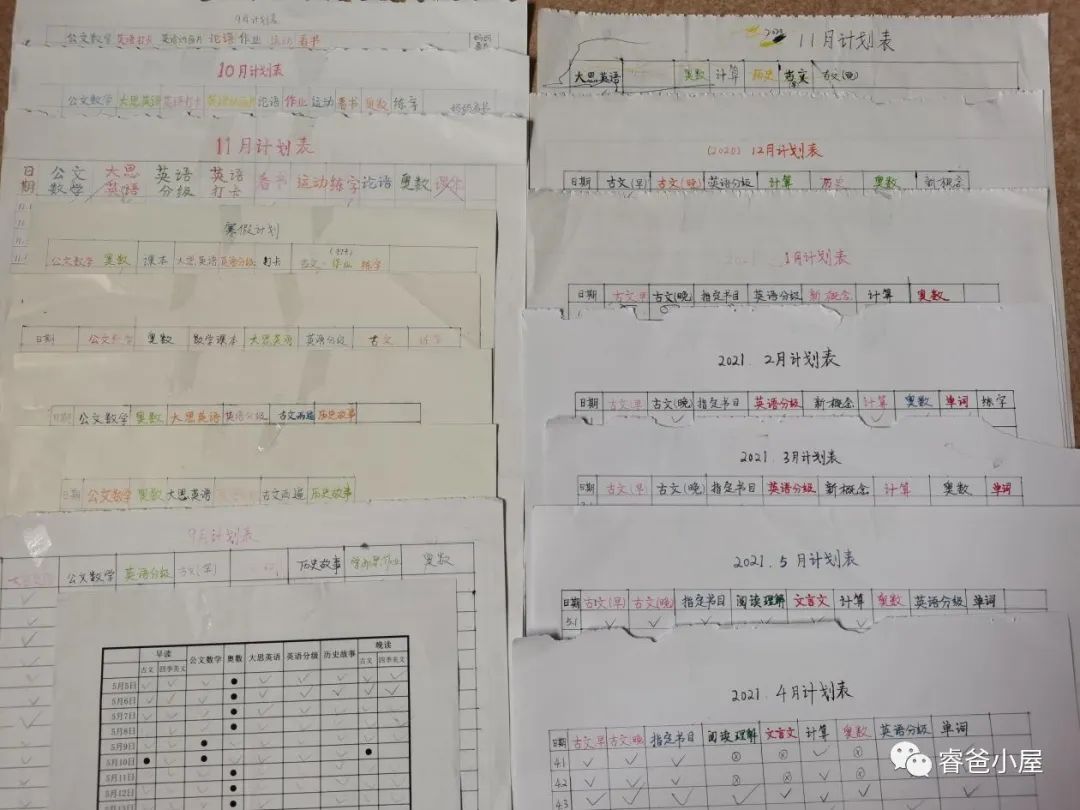 9月计划表
公文数学 英语打卡 英语动画片 论语 作业 运动 看书
10月计划表
公文数学 大思英语 英语打卡 论语 作业 运动 看书 奥数 练字
11月计划表
日期 公文数学 大思英语 英语分级 英语打卡 看书 运动 练字 论语 奥数 课本
寒假计划
公文数学 奥数 课本 大思英语 英语分级 打卡 古文 作业 练字
日期 公文数学 奥数 数学课本 大思英语 英语分级 古文
日期 公文数学 奥数 大思英语 英语分级 古文两遍 历史故事
日期 公文数学 奥数 大思英语 古文两遍 历史故事
9月计划表
公文数学 英语分级 古文(早) 历史故事 奥数
早读 公文数学 奥数 大思英语 英语分级 历史故事 晚读
古文 四季英文 古文 四季英文
5月5日
5月6日
5月7日
5月8日
5月9日
5月10日
5月11日
5月12日
11月计划表
大思英语 奥数 计算 历史 古文(晚)
(2020) 12月计划表
日期 古文(早) 古文(晚) 英语分级 计算 历史 奥数 新概念
2021 1月计划表
日期 古文早 古文(晚) 指定书目 英语分级 新概念 计算 奥数
2021. 2月计划表
日期 古文早 古文(晚) 指定书目 英语分级 新概念 计算 奥数 单词 练字
2021. 3月计划表
日期 古文(早) 古文(晚) 指定书目 英语分级 新概念 计算 奥数 单词
2021. 5月计划表
日期 古文(早) 古文(晚) 指定书目 阅读理解 文言文 计算 奥数 英语分级 单词
5.1
2021. 4月计划表
日期 古文早 古文晚 指定书目 阅读理解 文言文 计算 奥数 英语分级 单词
4.1
4.2
4.3
睿爸小屋